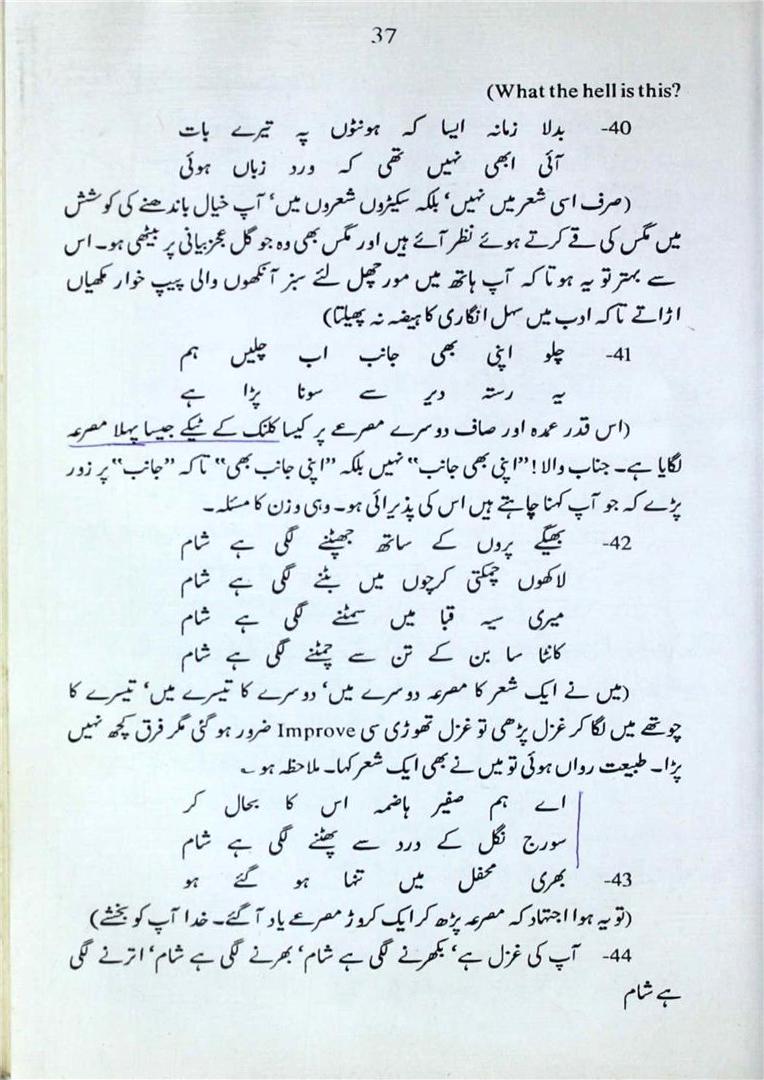 37
(What the hell is this?
40- بدلا زمانہ ایسا کہ ہونٹوں پہ تیرے بات
آئی ابھی نہیں تھی کہ ورد زباں ہوئی
(صرف اسی شعر میں نہیں، بلکہ سیکڑوں شعروں میں، آپ خیال باندھنے کی کوشش
میں مگس کی قے کرتے ہوئے نظر آئے ہیں اور مگس بھی وہ جو گل عجز بیانی پر بیٹھی ہو۔ اس
سے بہتر تو یہ ہوتا کہ آپ ہاتھ میں مورچھل لئے سبز آنکھوں والی پیپ خوار مکھیاں
اڑاتے تاکہ ادب میں سہل انگاری کا ہیضہ نہ پھیلتا)
41- چلو اپنی بھی جانب اب چلیں ہم
یہ رستہ دیر سے سونا پڑا ہے
(اس قدر عمدہ اور صاف دوسرے مصرعے پر کیسا کلنک کے ٹیکے جیسا پہلا مصرعہ
لگایا ہے۔ جناب والا! ”اپنی بھی جانب“ نہیں بلکہ ”اپنی جانب بھی“ تاکہ ”جانب“ پر زور
پڑے کہ جو آپ کہنا چاہتے ہیں اس کی پذیرائی ہو۔ وہی وزن کا مسئلہ۔
42- بھیگے پروں کے ساتھ جھپٹنے لگی ہے شام
لاکھوں چمکتی کرچوں میں بٹنے لگی ہے شام
میری سیہ قبا میں سمٹنے لگی ہے شام
کانٹا سا بن کے تن سے چمٹنے لگی ہے شام
(میں نے ایک شعر کا مصرعہ دوسرے میں، دوسرے کا تیسرے میں، تیسرے کا
چوتھے میں لگا کر غزل پڑھی تو غزل تھوڑی سی Improve ضرور ہو گئی مگر فرق کچھ نہیں
پڑا۔ طبیعت رواں ہوئی تو میں نے بھی ایک شعر کہا۔ ملاحظہ ہو ؎
اے ہم صفیر ہاضمہ اس کا بحال کر
سورج نگل کے درد سے پھٹنے لگی ہے شام
43- بھری محفل میں تنہا ہو گئے ہو
(تو یہ ہوا اجتہاد کہ مصرعہ پڑھ کر ایک کروڑ مصرعے یاد آ گئے۔ خدا آپ کو بخشے)
44- آپ کی غزل ہے، بکھرنے لگی ہے شام، بھرنے لگی ہے شام، اترنے لگی
ہے شام